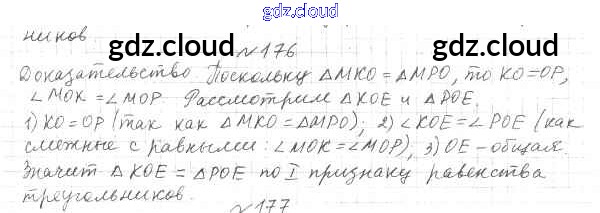 gdz.cloud
ников
№176
gdz.cloud gdz.cloud
Доказательство. Поскольку △MKO = △MPO, то KO=OP,
∠MOK = ∠MOP. Рассмотрим △KOE и △POE.
1) KO=OP (так как △MKO=△MPO); 2) ∠KOE=∠POE (как
смежные с равными: ∠MOK=∠MOP), 3) OE - общая.
Значит △KOE = △POE по I признаку равенства
треугольников.
gdz.cloud gdz.cloud
№177